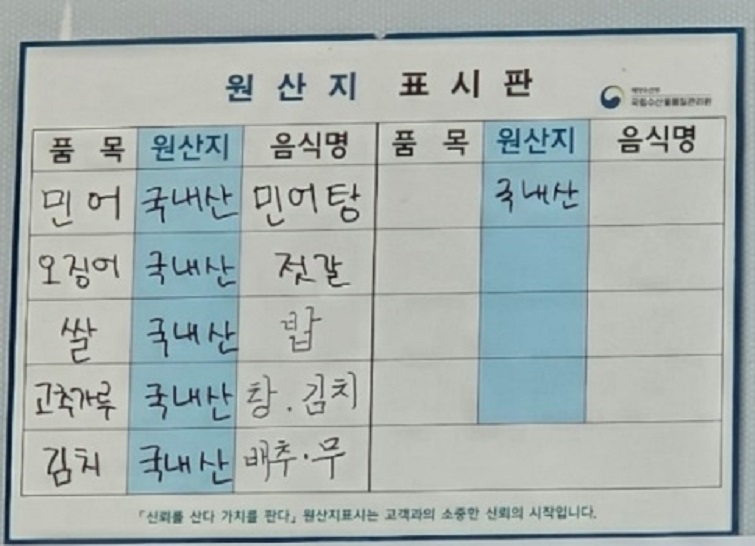 원산지 표시판
해양수산부
국립수산물품질관리원
품목 원산지 음식명 품목 원산지 음식명
민어 국내산 민어탕 국내산
오징어 국내산 젓갈
쌀 국내산 밥
고추가루 국내산 탕.김치
김치 국내산 배추.무
「신뢰를 산다 가치를 판다」 원산지표시는 고객과의 소중한 신뢰의 시작입니다.